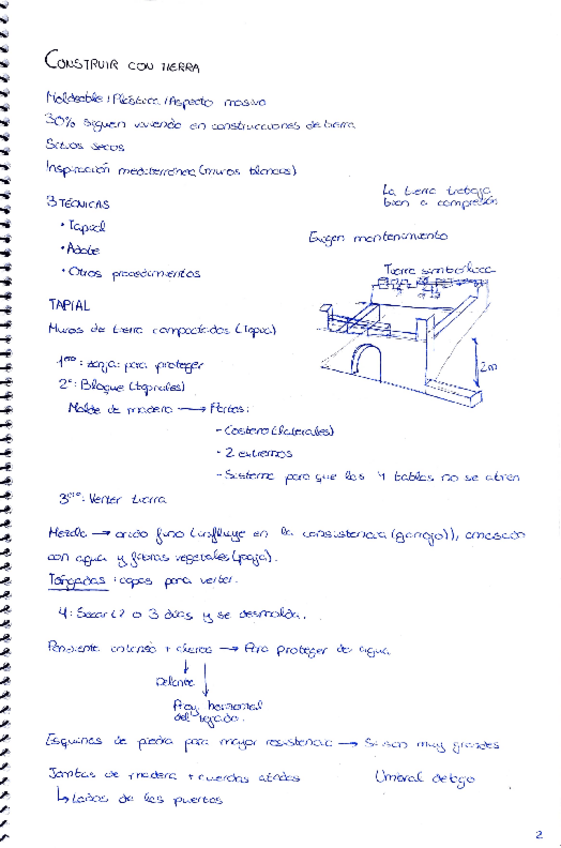 CONSTRUIR CON TIERRA
Moldeable / Plástica / Aspecto masivo
30% siguen viviendo en construcciones de tierra
Sitios secos
Inspiración mediterránea (muros blancos)
La tierra trabaja
bien a compresión
3 TÉCNICAS
• Tapial
• Adobe
• Otros procedimientos
Exigen mantenimiento
Tierra simbólica
TAPIAL
Muros de tierra compactados (tapia)
2m
1ero: zanja: para proteger
2º: Bloque (tapiales)
Molde de madera → Partes:
- Costero (laterales)
- 2 extremos
- Sistema para que las 4 tablas no se abran
3ero: Verter tierra
Mezcla → árido fino (influye en la consistencia (garrojo)), amasado
con agua y fibras vegetales (paja).
Tongadas: capas para verter.
4: Secar (2 o 3 días y se desmolda.
Pendiente + aleros → Para proteger de agua
Delante
horizontal
del tejado.
Esquinas de piedra para mayor resistencia → Si son muy grandes
Jambas de madera + cuerdas atadas
↳ Lados de las puertas
Umbral debajo
2